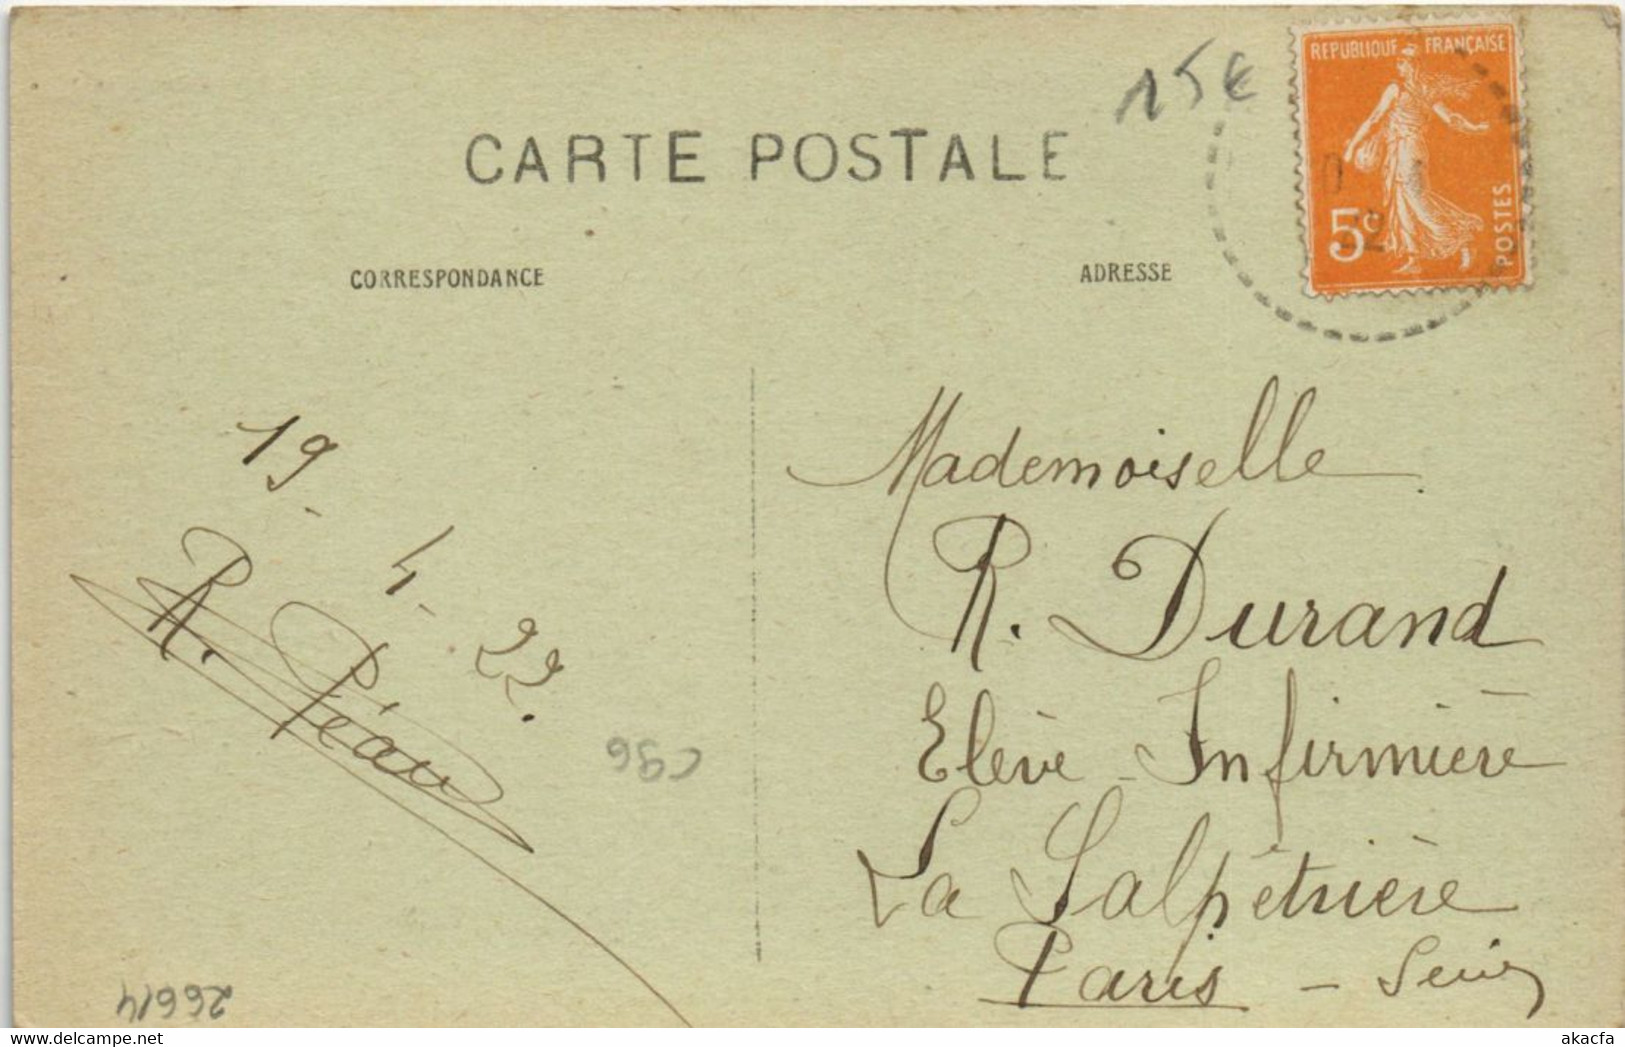 15€
REPUBLIQUE FRANÇAISE
5c
POSTES
22
CARTE POSTALE
CORRESPONDANCE
ADRESSE
19 - 4 - 22.
R. Péau
Mademoiselle
R. Durand
Elève Infirmière
La Salpêtrière
Paris - Seine
C96
26614
akacfa